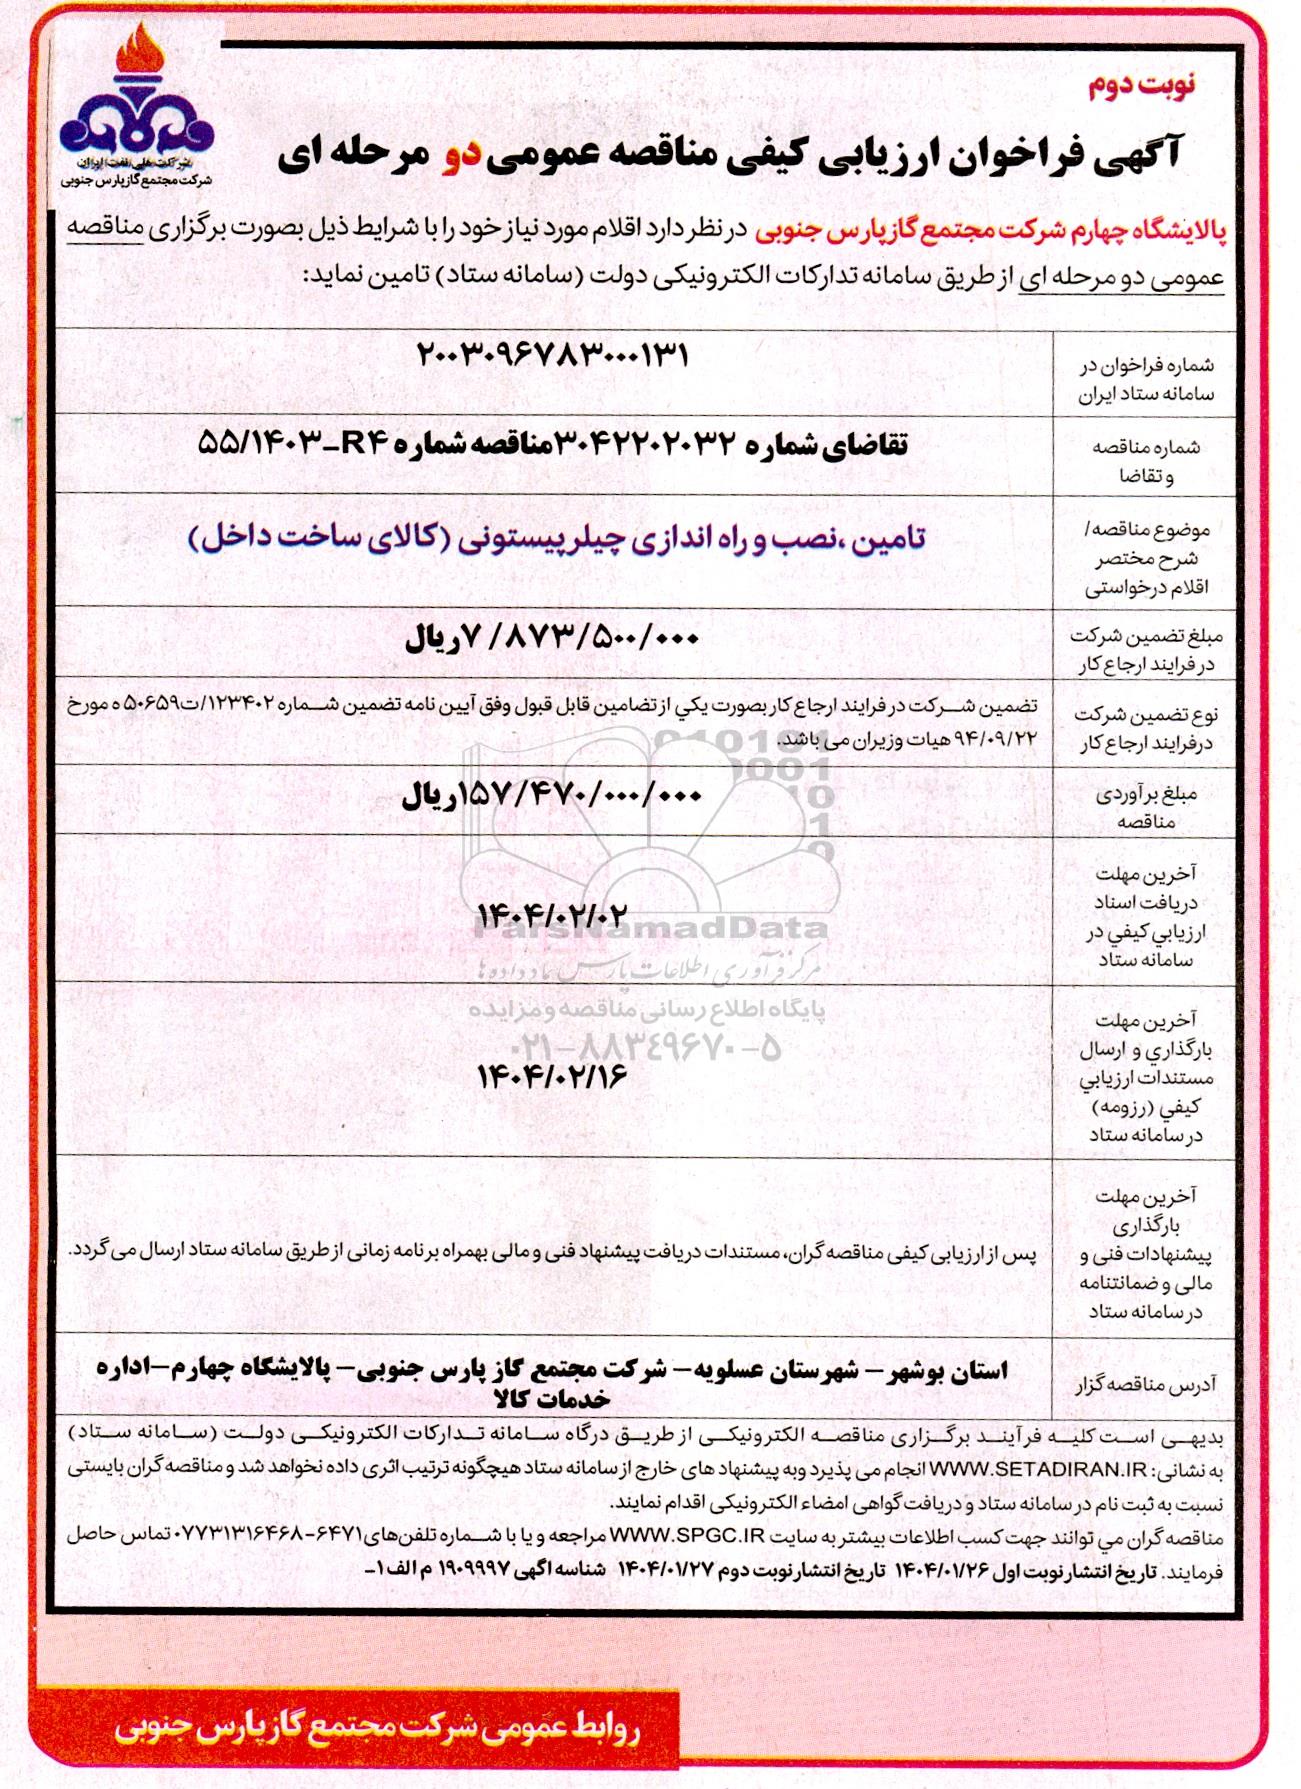 شرکت ملی نفت ایران
شرکت مجتمع گاز پارس جنوبی
نوبت دوم
آگهی فراخوان ارزیابی کیفی مناقصه عمومی دو مرحله ای
پالایشگاه چهارم شرکت مجتمع گاز پارس جنوبی در نظر دارد اقلام مورد نیاز خود را با شرایط ذیل بصورت برگزاری مناقصه
عمومی دو مرحله ای از طریق سامانه تدارکات الکترونیکی دولت (سامانه ستاد) تامین نماید:
شماره فراخوان در
سامانه ستاد ایران
۲۰۰۳۰۹۶۷۸۳۰۰۰۱۳۱
شماره مناقصه
و تقاضا
تقاضای شماره ۳۰۴۲۲۰۲۰۳۲مناقصه شماره ۵۵/۱۴۰۳-R۴
موضوع مناقصه/
شرح مختصر
اقلام درخواستی
تامین ،نصب و راه اندازی چیلر پیستونی (کالای ساخت داخل)
مبلغ تضمین شرکت
در فرایند ارجاع کار
۷/۸۷۳/۵۰۰/۰۰۰ریال
نوع تضمین شرکت
درفرایند ارجاع کار
تضمین شرکت در فرایند ارجاع کار بصورت یکي از تضامین قابل قبول وفق آیین نامه تضمین شماره ۱۲۳۴۰۲/ت۵۰۶۵۹ه مورخ
۹۴/۰۹/۲۲ هیات وزیران می باشد.
مبلغ برآوردی
مناقصه
۱۵۷/۴۷۰/۰۰۰/۰۰۰ریال
آخرین مهلت
دریافت اسناد
ارزیابي کیفي در
سامانه ستاد
۱۴۰۴/۰۲/۰۲
ParsNamadData
مرکز فرآوری اطلاعات پارس نماد داده ها
پایگاه اطلاع رسانی مناقصه و مزایده
۰۲۱-۸۸۳۴۹۶۷۰-۵
آخرین مهلت
بارگذاري و ارسال
مستندات ارزیابي
کیفي (رزومه)
در سامانه ستاد
۱۴۰۴/۰۲/۱۶
آخرین مهلت
بارگذاری
پیشنهادات فنی و
مالی و ضمانتنامه
در سامانه ستاد
پس از ارزیابی کیفی مناقصه گران، مستندات دریافت پیشنهاد فنی و مالی بهمراه برنامه زمانی از طریق سامانه ستاد ارسال می گردد.
آدرس مناقصه گزار
استان بوشهر – شهرستان عسلویه– شرکت مجتمع گاز پارس جنوبی– پالایشگاه چهارم–اداره
خدمات کالا
بدیهی است کلیه فرآیند برگزاری مناقصه الکترونیکی از طریق درگاه سامانه تدارکات الکترونیکی دولت (سامانه ستاد)
به نشانی: WWW.SETADIRAN.IR انجام می پذیرد وبه پیشنهاد های خارج از سامانه ستاد هیچگونه ترتیب اثری داده نخواهد شد و مناقصه گران بایستی
نسبت به ثبت نام در سامانه ستاد و دریافت گواهی امضاء الکترونیکی اقدام نمایند.
مناقصه گران مي توانند جهت کسب اطلاعات بیشتر به سایت WWW.SPGC.IR مراجعه و یا با شماره تلفن‌های ۶۴۷۱-۰۷۷۳۱۳۱۶۴۶۸ تماس حاصل
فرمایند. تاریخ انتشار نوبت اول ۱۴۰۴/۰۱/۲۶ تاریخ انتشار نوبت دوم ۱۴۰۴/۰۱/۲۷ شناسه اگهی ۱۹۰۹۹۹۷ م الف ۱-
روابط عمومی شرکت مجتمع گاز پارس جنوبی